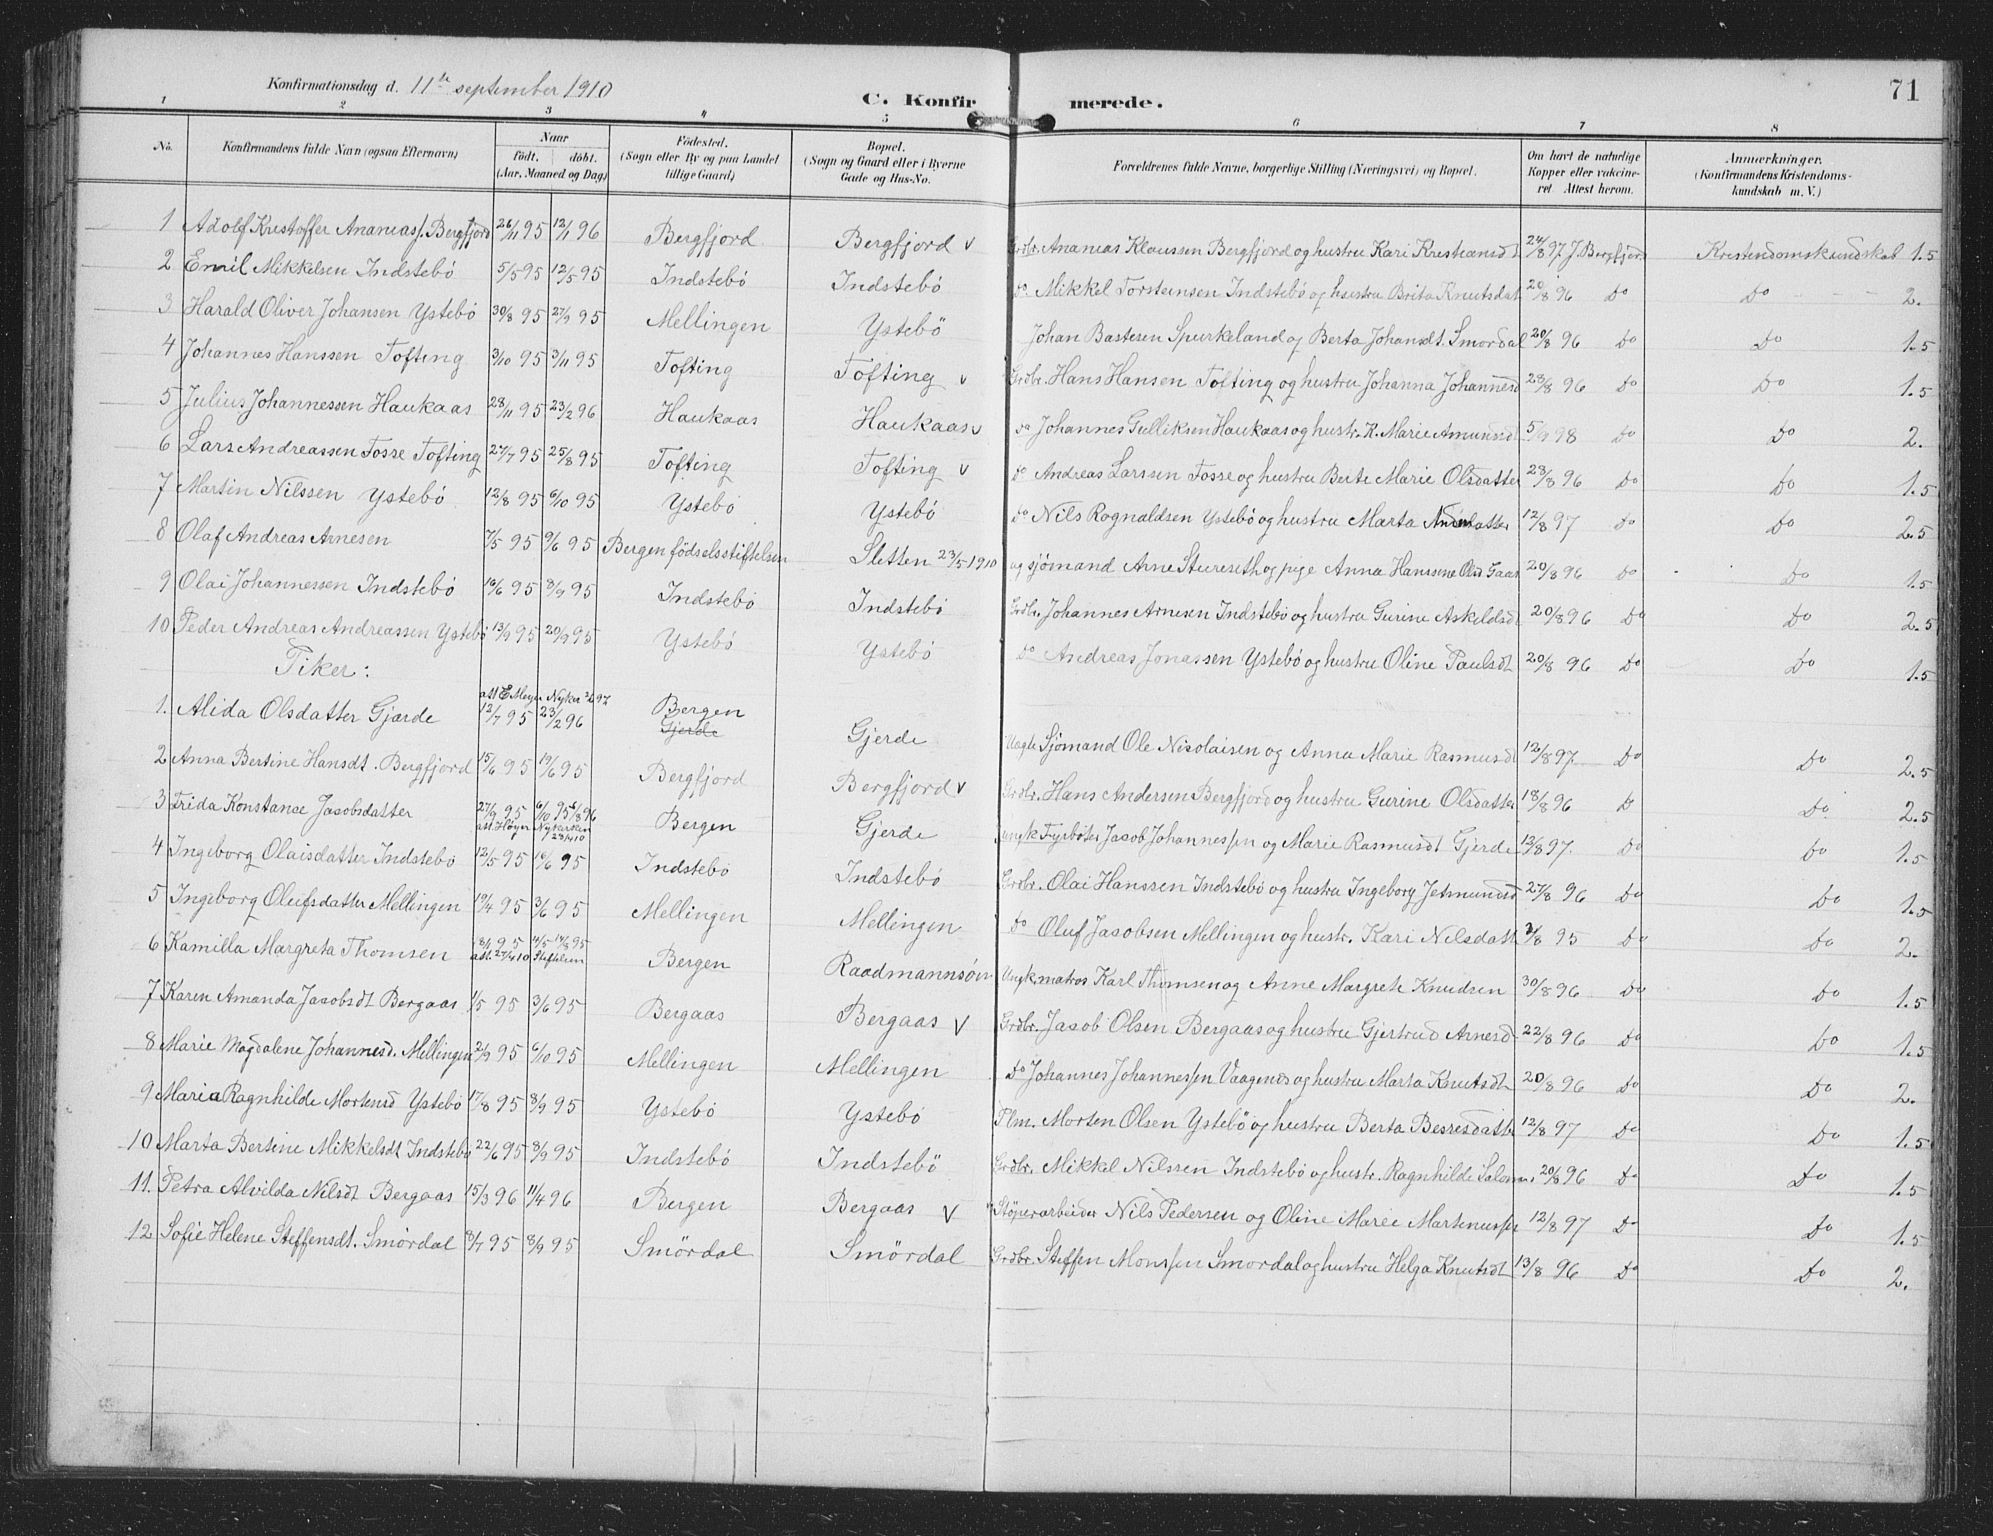 71
Konfirmationsdag d. 11te september 1910
C. Konfirmerede.
1 2 3 4 5 6 7 8
No. Konfirmandens fulde Navn (ogsaa Efternavn) Naar födt. döbt. (Aar, Maaned og Dag) Födested. (Sogn eller By og paa Landet tillige Gaard) Bopæl. (Sogn og Gaard eller i Byerne Gade og Hus-No. Forældrenes fulde Navne, borgerlige Stilling (Næringsvei) og Bopæl. Om havt de naturlige Kopper eller vakcineret. Attest herom. Anmærkninger. (Konfirmandens Kristendomskundskab m. V.)
1 Adolf Kristoffer Ananiass. Bergfjord 26/11 95 12/1 96 Bergfjord Bergfjord v Grdbr. Ananias Klaussen Bergfjord og hustru Kari Kristiansdt 24/8 97 J. Bergfjord Kristendomskundskab 1.5
2 Emil Mikkelsen Indstebö 5/5 95 12/5 95 Indstebö Indstebö do Mikkel Torsteinsen Indstebö og hustru Brita Knutsdat 20/8 96 Do Do 2.
3 Harald Oliver Johansen Ystebö 30/8 95 27/9 95 Mellingen Ystebö Johan Bastesen Spurkeland og Berta Johansdt. Smördal 20/8 96 Do Do 1.5
4 Johannes Hanssen Tofting 3/10 95 3/11 95 Tofting Tofting v Grdbr. Hans Hansen Tofting og hustru Johanna Johannesd 28/8 96 Do Do 1.5
5 Julius Johannessen Haukaas 28/11 95 23/2 96 Haukaas Haukaas v do Johannes Gulliksen Haukaas og hustr. K. Marie Amundsdt 5/9 98 Do Do 2.
6 Lars Andreassen Fosse Tofting 27/7 95 25/8 95 Tofting Tofting v do Andreas Larssen Fosse og hustru Berte Marie Olsdatter 28/8 96 Do Do 1.5
7 Martin Nilssen Ystebö 12/8 95 6/10 95 Ystebö Ystebö do Nils Rognaldsen Ystebö og hustru Marta 12/8 97 Do Do 2.5
8 Olaf Andreas Arnesen 7/5 95 9/6 95 Bergen födselsstiftelsen Sletten 23/5 1910 ug sjömand Arne og pige Anna Hanssine Olsd Gaas 20/8 96 Do Do 1.5
9 Olai Johannessen Indstebö 16/6 95 8/9 95 Indstebö Indstebö Grdbr. Johannes Arnesen Indstebö og hustru Gurine Askeldsdt 20/8 96 Do Do 2.5
10 Peder Andreas Andreassen Ystebö 13/9 95 20/9 95 Ystebö Ystebö do Andreas Jonassen Ystebö og hustru Oline Paulsdt 20/8 96 Do Do 1.5
Piker:
1. Alida Olsdatter Gjærde att E Meyer Nykir 97 12/7 95 23/2 96 Bergen Gjerde Gjerde Ungk Sjömand Ole Nicolaisen og Anna Marie Rasmusdt 12/8 97 Do Do 2.5
2 Anna Bertine Hansdt. Bergfjord 15/6 95 19/6 95 Bergfjord Bergfjord v Grdbr. Hans Andersen Bergfjord og hustru Gurine Olsdatter 18/8 96 D Do 2.5
3 Frida Konstance Jacobsdatter 27/9 95 6/10 95 4/8 96 att. Höyer Nykirken 23/4 10 Bergen Gjerde ungk Fyrböter Jacob Johannessen og Marie Rasmusdt Gjerde 12/8 97. Do Do 1.5
4 Ingeborg Olaisdatter Indstebö 12/5 95 16/6 95 Indstebö Indstebö Grdbr. Olai Hanssen Indstebö og hustru Ingeborg Jetmundsd 27/8 96 Do Do 1.5
5 Ingeborg Olufsdatter Mellingen 19/4 95 3/6 95 Mellingen Mellingen do Oluf Jacobsen Mellingen og hustr. Kari Nilsdatt 2/8 95 Do Do 2.
6 Kamilla Margreta Thomsen 18/4 95 14/5 18/8 95 att. 27/4 10 Stiftelsen Bergen Raadmannsön Ungk. matros Karl Thomsen og Anne Margrete Knudsen 30/8 96 Do Do 1.5
7 Karen Amanda Jacobsdt Bergaas 1/5 95 3/6 95 Bergaas Bergaas v Grdbr. Jacob Olsen Bergaas og hustru Gjertrud Arnesd- 22/8 96 Do Do 1.5
8 Marie Magdalene Johannesd. Mellingen 21/9 95 6/10 95 Mellingen Mellingen Do Johannes Johannessen Vaagenes og hustru Marta Knutsdt 20/8 96 Do Do 2.
9 Maria Ragnhilde Mortensd Ystebö 17/8 95 8/9 95 Ystebö Ystebö Plm. Morten Olsen Ystebö og hustru Berta 12/8 97 Do Do 1.5
10 Marta Bertine Mikkelsdt Indstebö 22/6 95 8/9 95 Indstebö Indstebö Grdbr. Mikkel Nilssen Indstebö og hustr. Ragnhilde 20/8 96 Do Do 1.5
11. Petra Alvilda Nilsdt Bergaas 15/3 96 11/4 96 Bergen Bergaas v Stöperarbeider Nils Pedersen og Oline Marie Martinussen 12/8 97 Do Do 1.5
12 Sofie Helene Steffensdt. Smördal 8/7 95 8/9 95 Smördal Smördal Grdbr. Steffen Monssen Smördal og hustru Helga Knutsdt 13/8 96 Do Do 2.